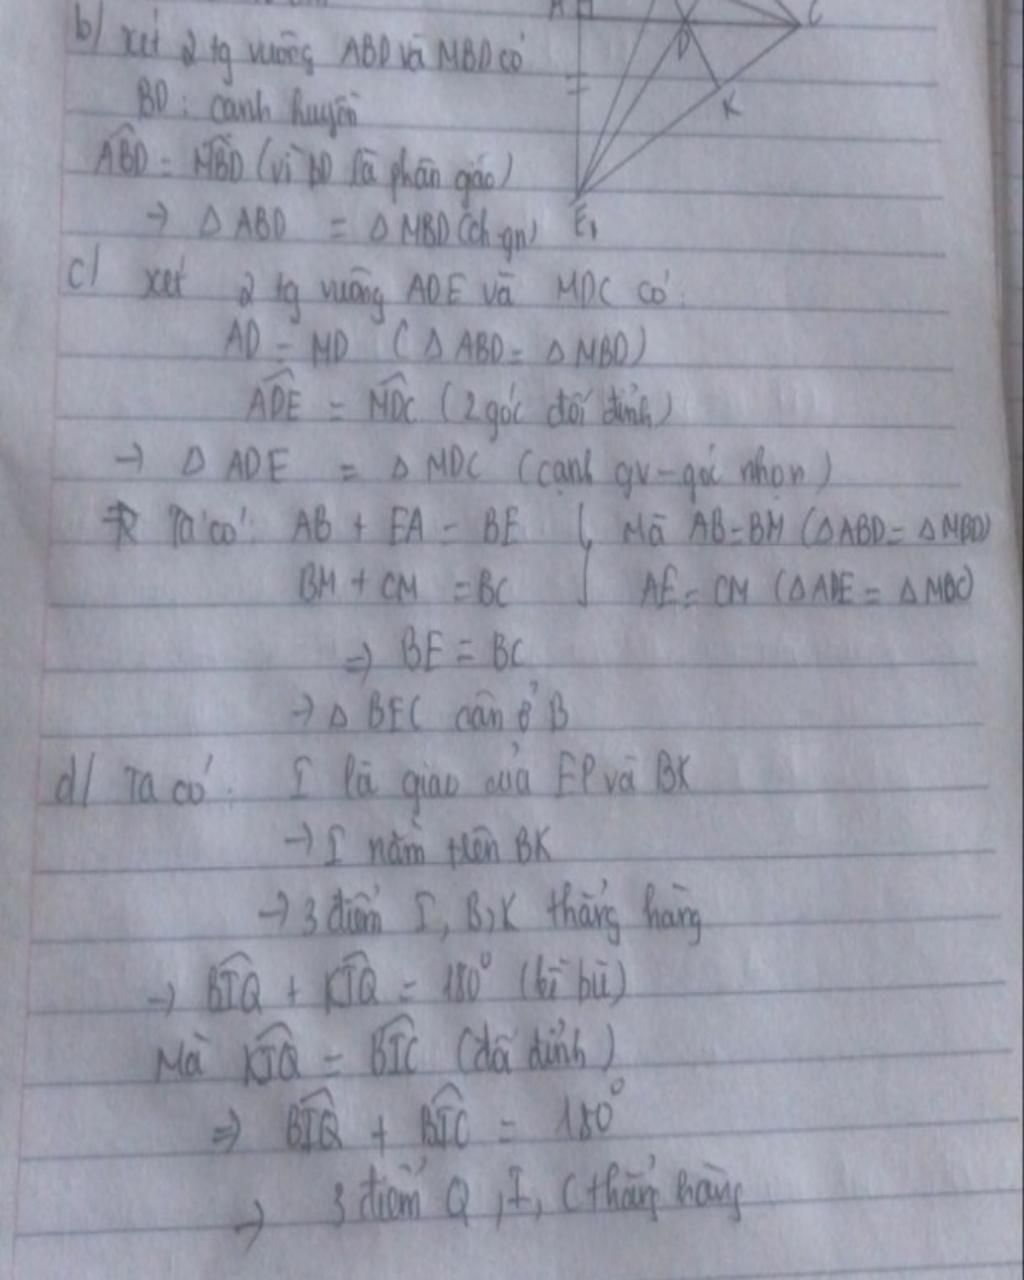 A
C
D
K
E
b) xét 2 tg vuông ABD và MBD có
BD: cạnh huyền
ABD = MBD (vì BD là phân giác)
→ Δ ABD = Δ MBD (ch-gn)
c) xét 2 tg vuông ADE và MDC có:
AD = MD (Δ ABD = Δ MBD)
ADE = MDC (2 góc đối đỉnh)
→ Δ ADE = Δ MDC (cạnh gv-góc nhọn)
Ta có: AB + EA = BE } Mà AB=BM (Δ ABD = Δ MBD)
BM + CM = BC AE = CM (Δ ADE = Δ MDC)
⇒ BE = BC
→ Δ BEC cân ở B
d) Ta có: I là giao của EP và BK
→ I nằm trên BK
→ 3 điểm I, B, K thẳng hàng
→ BIQ + KIQ = 180° (kề bù)
Mà KIQ = BIC (đối đỉnh)
⇒ BIQ + BIC = 180°
→ 3 điểm Q, I, C thẳng hàng